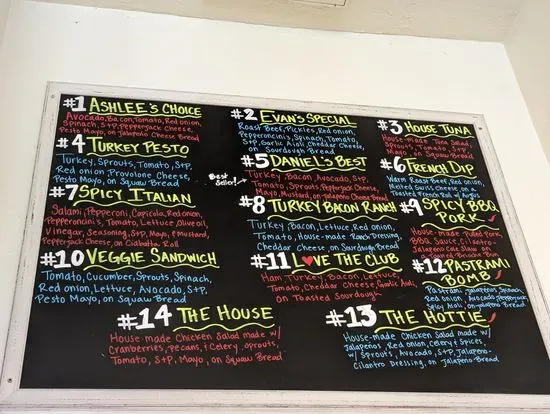 #1 ASHLEE'S CHOICE
Avocado, Bacon, Tomato, Red onion,
Spinach, S+P, Pepperjack Cheese,
Pesto Mayo, on Jalapeño Cheese Bread
#2 EVAN'S SPECIAL
Roast Beef, Pickles, Red onion,
Pepperoncini's, Spinach, Tomato,
S+P, Garlic Aioli, Cheddar Cheese,
on Sourdough Bread
#3 HOUSE TUNA
House-made Tuna Salad,
Sprouts, Tomato, S+P,
Mayo, on Squaw Bread
#4 TURKEY PESTO
Turkey, Sprouts, Tomato, S+P,
Red onion Provolone Cheese,
Pesto Mayo, on Squaw Bread
Best Seller!
#5 DANIEL'S BEST
Turkey, Bacon, Avocado, S+P,
Tomato, Sprouts, Pepperjack Cheese,
Mayo, Mustard, on Jalapeño Cheese Bread
#6 FRENCH DIP
Warm Roast Beef, Red onion,
Melted Swiss Cheese on a
Toasted French Roll w/ Aujus
#7 SPICY ITALIAN
Salami, Pepperoni, Capicola, Red onion,
Pepperoncini's, Tomato, Lettuce, Olive oil,
Vinegar, Seasoning, S+P, Mayo, Mustard,
Pepperjack Cheese, on Ciabatta Roll
#8 TURKEY BACON RANCH
Turkey, Bacon, Lettuce, Red onion,
Tomato, House-made Ranch Dressing,
Cheddar Cheese, on Sourdough Bread
#9 SPICY BBQ
PORK
House-made Pulled Pork,
BBQ Sauce, Cilantro-
Jalapeño Cole Slaw on
a Toasted Brioche Bun
#10 VEGGIE SANDWICH
Tomato, Cucumber, Sprouts, Spinach,
Red onion, Lettuce, Avocado, S+P,
Pesto Mayo, on Squaw Bread
#11 LOVE THE CLUB
Ham, Turkey, Bacon, Lettuce,
Tomato, Cheddar Cheese, Garlic Aioli,
on Toasted Sourdough
#12 PASTRAMI
BOMB
Pastrami, Jalapeños, Spinach,
Red onion, Avocado, Pepperjack,
Spicy Aioli, on Jalapeño Bread
#14 THE HOUSE
House-made Chicken Salad made w/
Cranberries, pecans, & Celery, Sprouts,
Tomato, S+P, Mayo, on Squaw Bread
#13 THE HOTTIE
House-made Chicken Salad made w/
Jalapeños, Red onion, Celery & Spices
w/ Sprouts, Avocado, S+P, Jalapeño-
Cilantro Dressing, on Jalapeño Bread